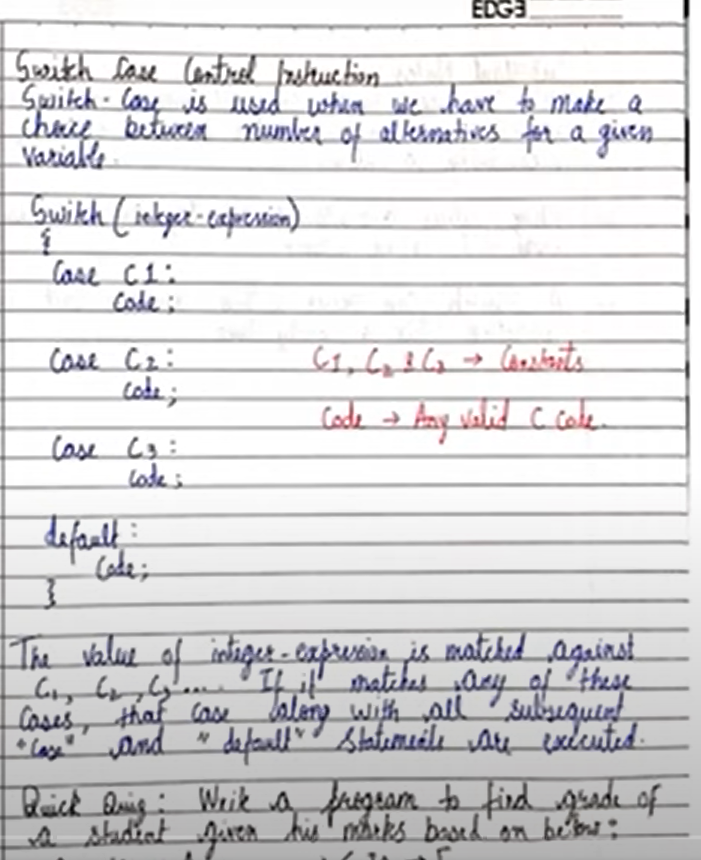 EDGE
Switch Case Control Instruction
Switch-Case is used when we have to make a
choice between number of alternatives for a given
variable.
Switch (integer-expression)
{
Case C1:
Code;
Case C2:
Code;
C1, C2 & C3 → Constants
Code → Any valid C code.
Case C3:
Code;
default:
Code;
}
The value of integer-expression is matched against
C1, C2, C3 .... If it matches any of these
Cases, that case along with all subsequent
"Case" and "default" statements are executed.
Quick Quiz: Write a program to find grade of
a student given his marks based on below: